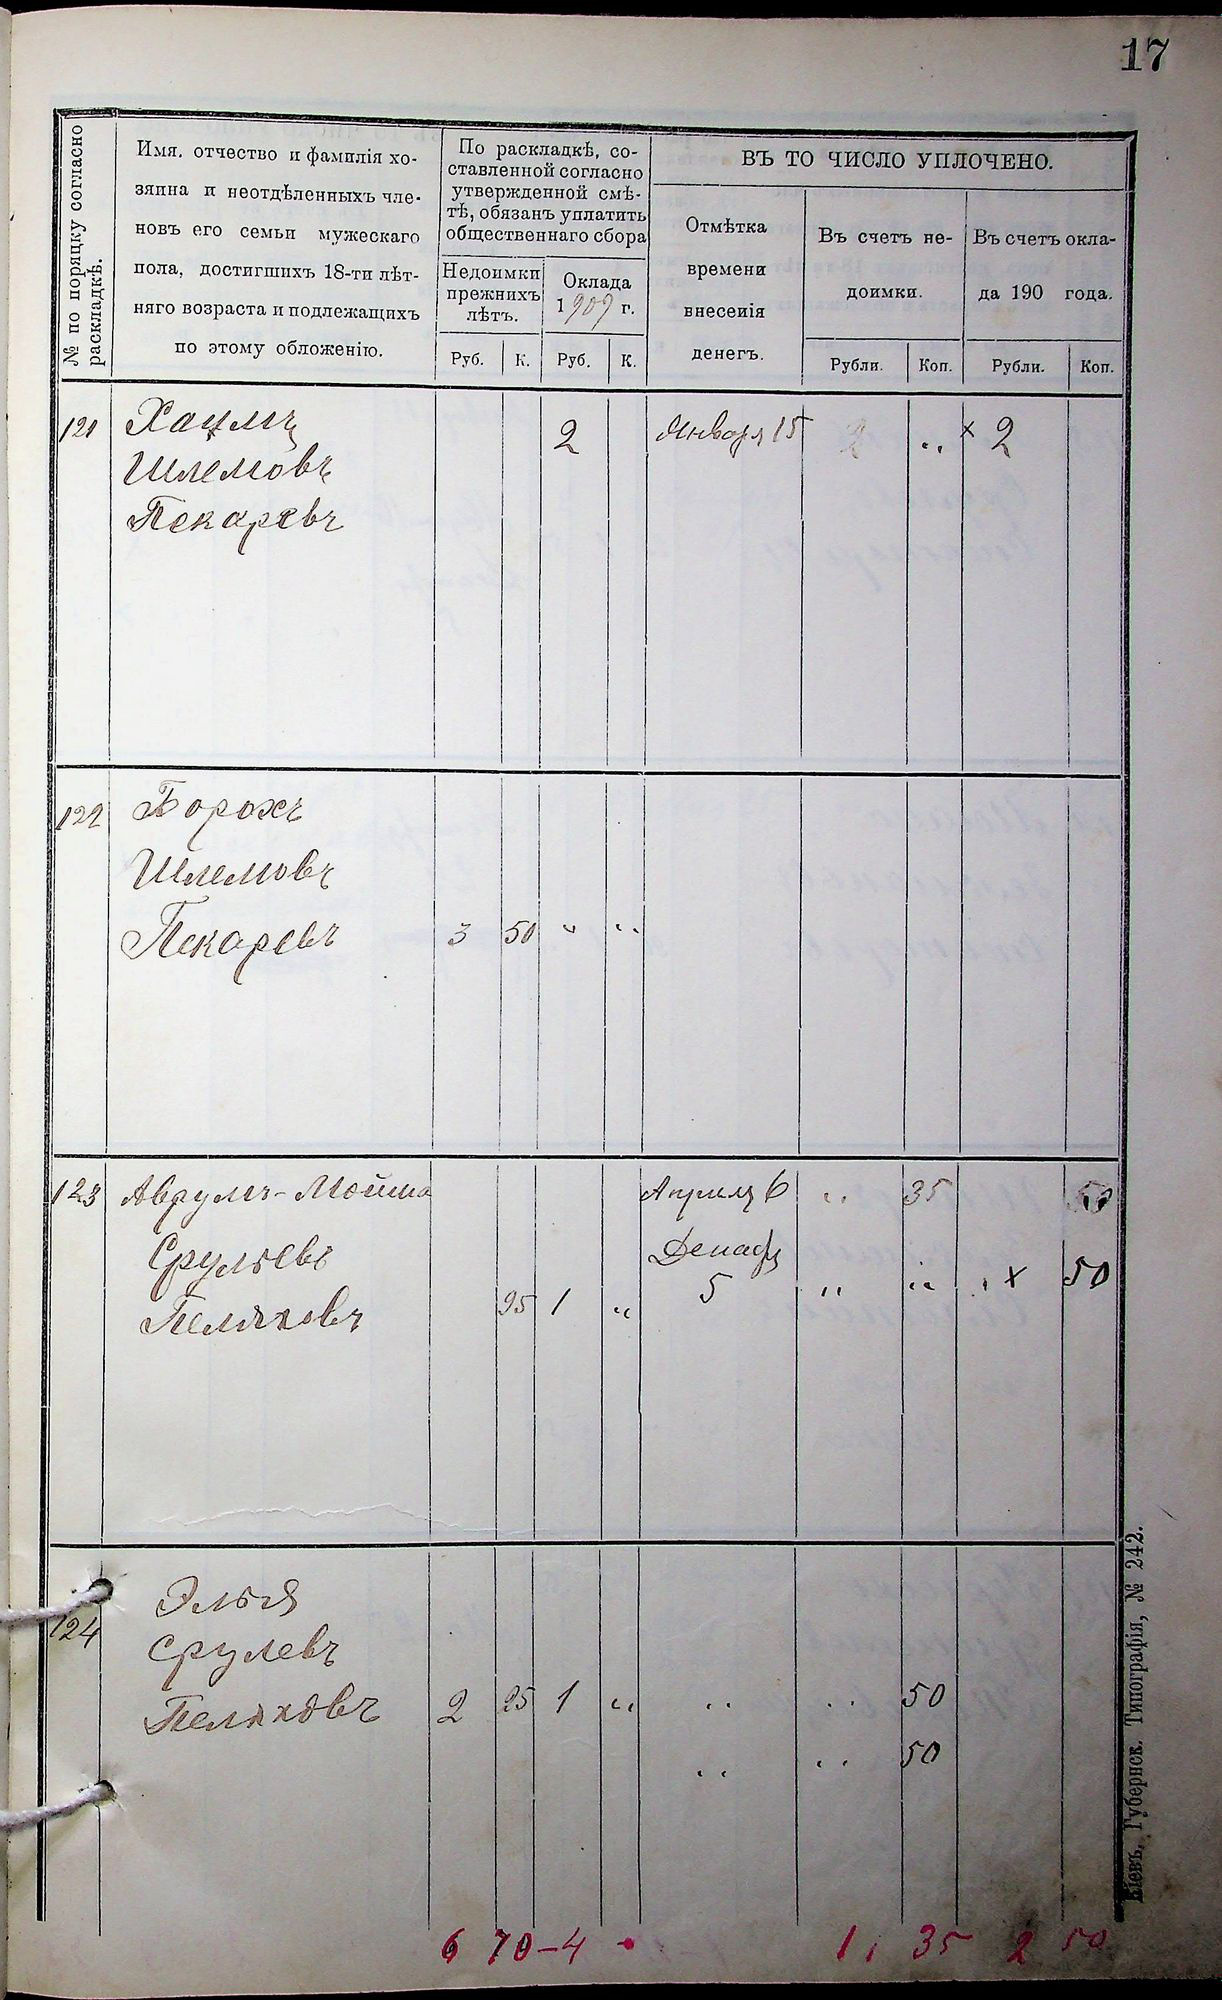 17
№ по порядку согласно
раскладкѣ.
Имя, отчество и фамилія хо-
зяина и неотдѣленныхъ чле-
новъ его семьи мужескаго
пола, достигшихъ 18-ти лѣт-
няго возраста и подлежащихъ
по этому обложенію.
По раскладкѣ, со-
ставленной согласно
утвержденной смѣ-
тѣ, обязанъ уплатить
общественнаго сбора
Недоимки
прежнихъ
лѣтъ.
Оклада
1909 г.
Руб. К. Руб. К.
ВЪ ТО ЧИСЛО УПЛОЧЕНО.
Отмѣтка
времени
внесенія
денегъ.
Въ счетъ не-
доимки.
Въ счетъ окла-
да 190 года.
Рубли. Коп. Рубли. Коп.
121 Хаимъ 2 Января 15 2 " × 2
Шлемовъ
Пекаревъ
122 Борохъ
Шлемовъ
Пекаревъ 3 50 " "
123 Аврумъ-Мойша Апреля 6 " 35 50
Срулевъ Декабр
Пеляховъ 95 1 " 5 " " " × 50
124 Элья
Срулевъ
Пеляховъ 2 25 1 " " " 50
" " 50
6 70 - 4 1 , 35 2 50
Кіевъ, Губернск. Типографія, № 242.